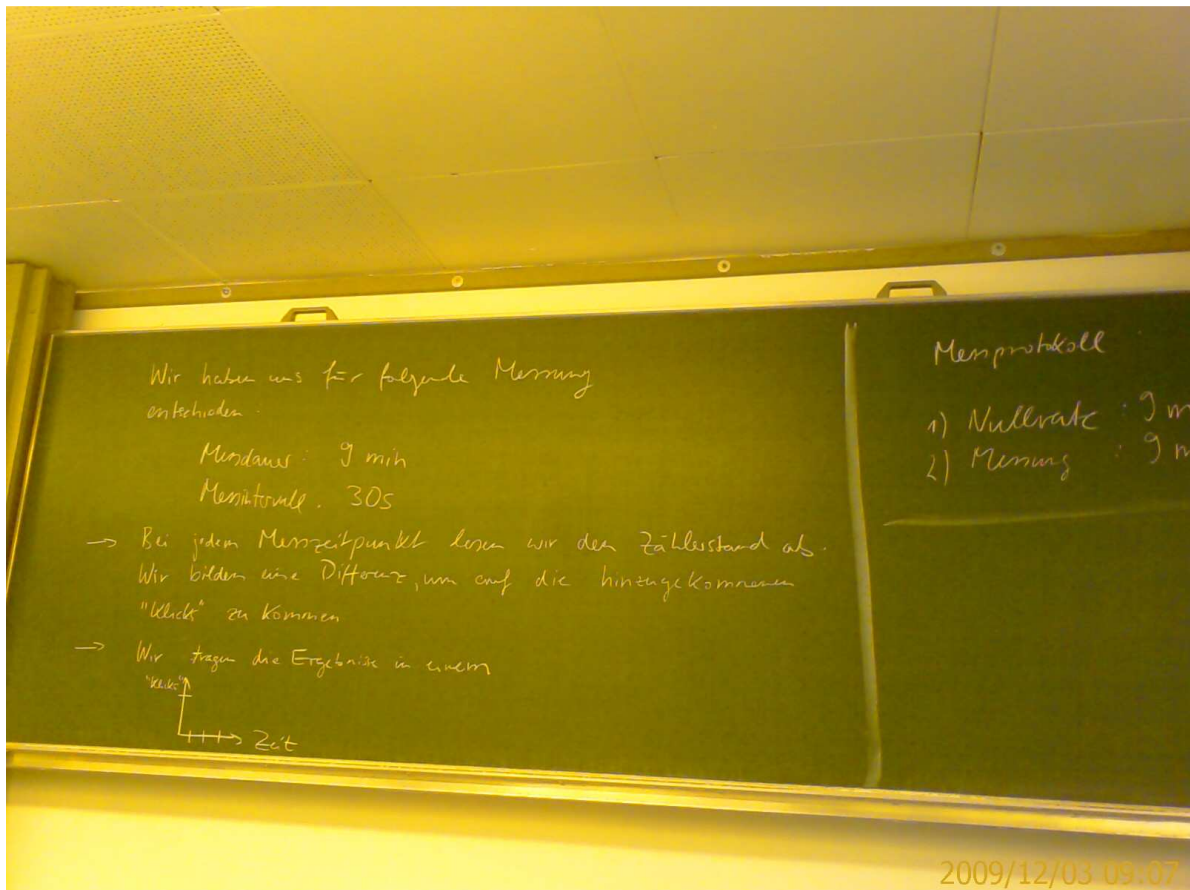 Wir haben uns für folgende Messung
entschieden.
Messdauer: 9 min
Messintervall. 30s
→ Bei jedem Messzeitpunkt lesen wir den Zählerstand ab.
Wir bilden eine Differenz, um auf die hinzugekommenen
"Klicks" zu kommen
→ Wir tragen die Ergebnisse in einem
"Klicks"
Zeit
Messprotokoll
1) Nullrate : 9 m
2) Messung : 9 m
2009/12/03 09:07